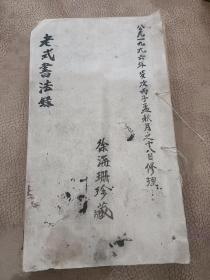 公元一九九六年岁次丙子孟秋月之十八日修理
徐海珊珍藏
老式書法錄